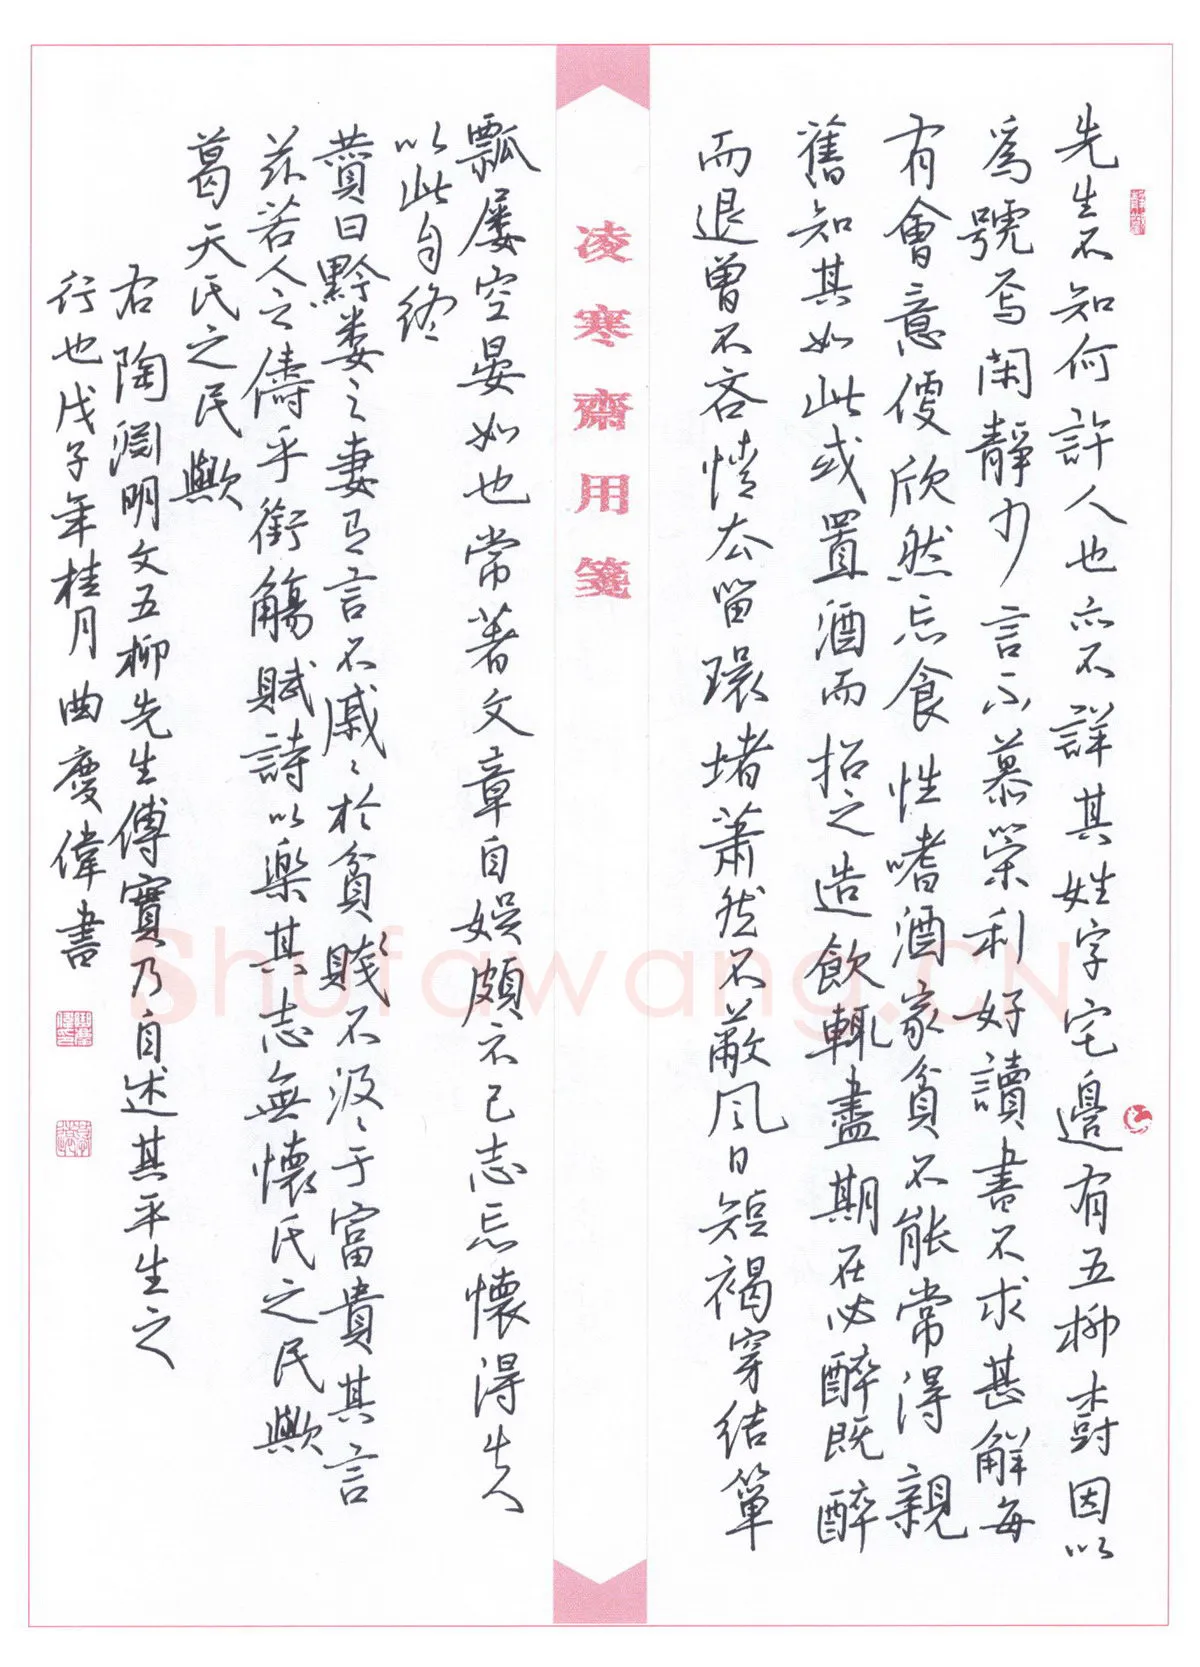 先生不知何許人也亦不詳其姓字宅邊有五柳樹因以
爲號焉閑靜少言不慕榮利好讀書不求甚解每
有會意便欣然忘食性嗜酒家貧不能常得親
舊知其如此或置酒而招之造飲輒盡期在必醉既醉
而退曾不吝情去留環堵蕭然不蔽風日短褐穿結簞
凌寒齋用箋
瓢屢空晏如也常著文章自娛頗示己志忘懷得失
以此自終
贊曰黔婁之妻有言不戚〻於貧賤不汲〻于富貴其言
茲若人之儔乎銜觴賦詩以樂其志無懷氏之民歟
葛天氏之民歟
右陶淵明文五柳先生傳實乃自述其平生之
行也戊子年桂月曲慶偉書
Shufawang.CN